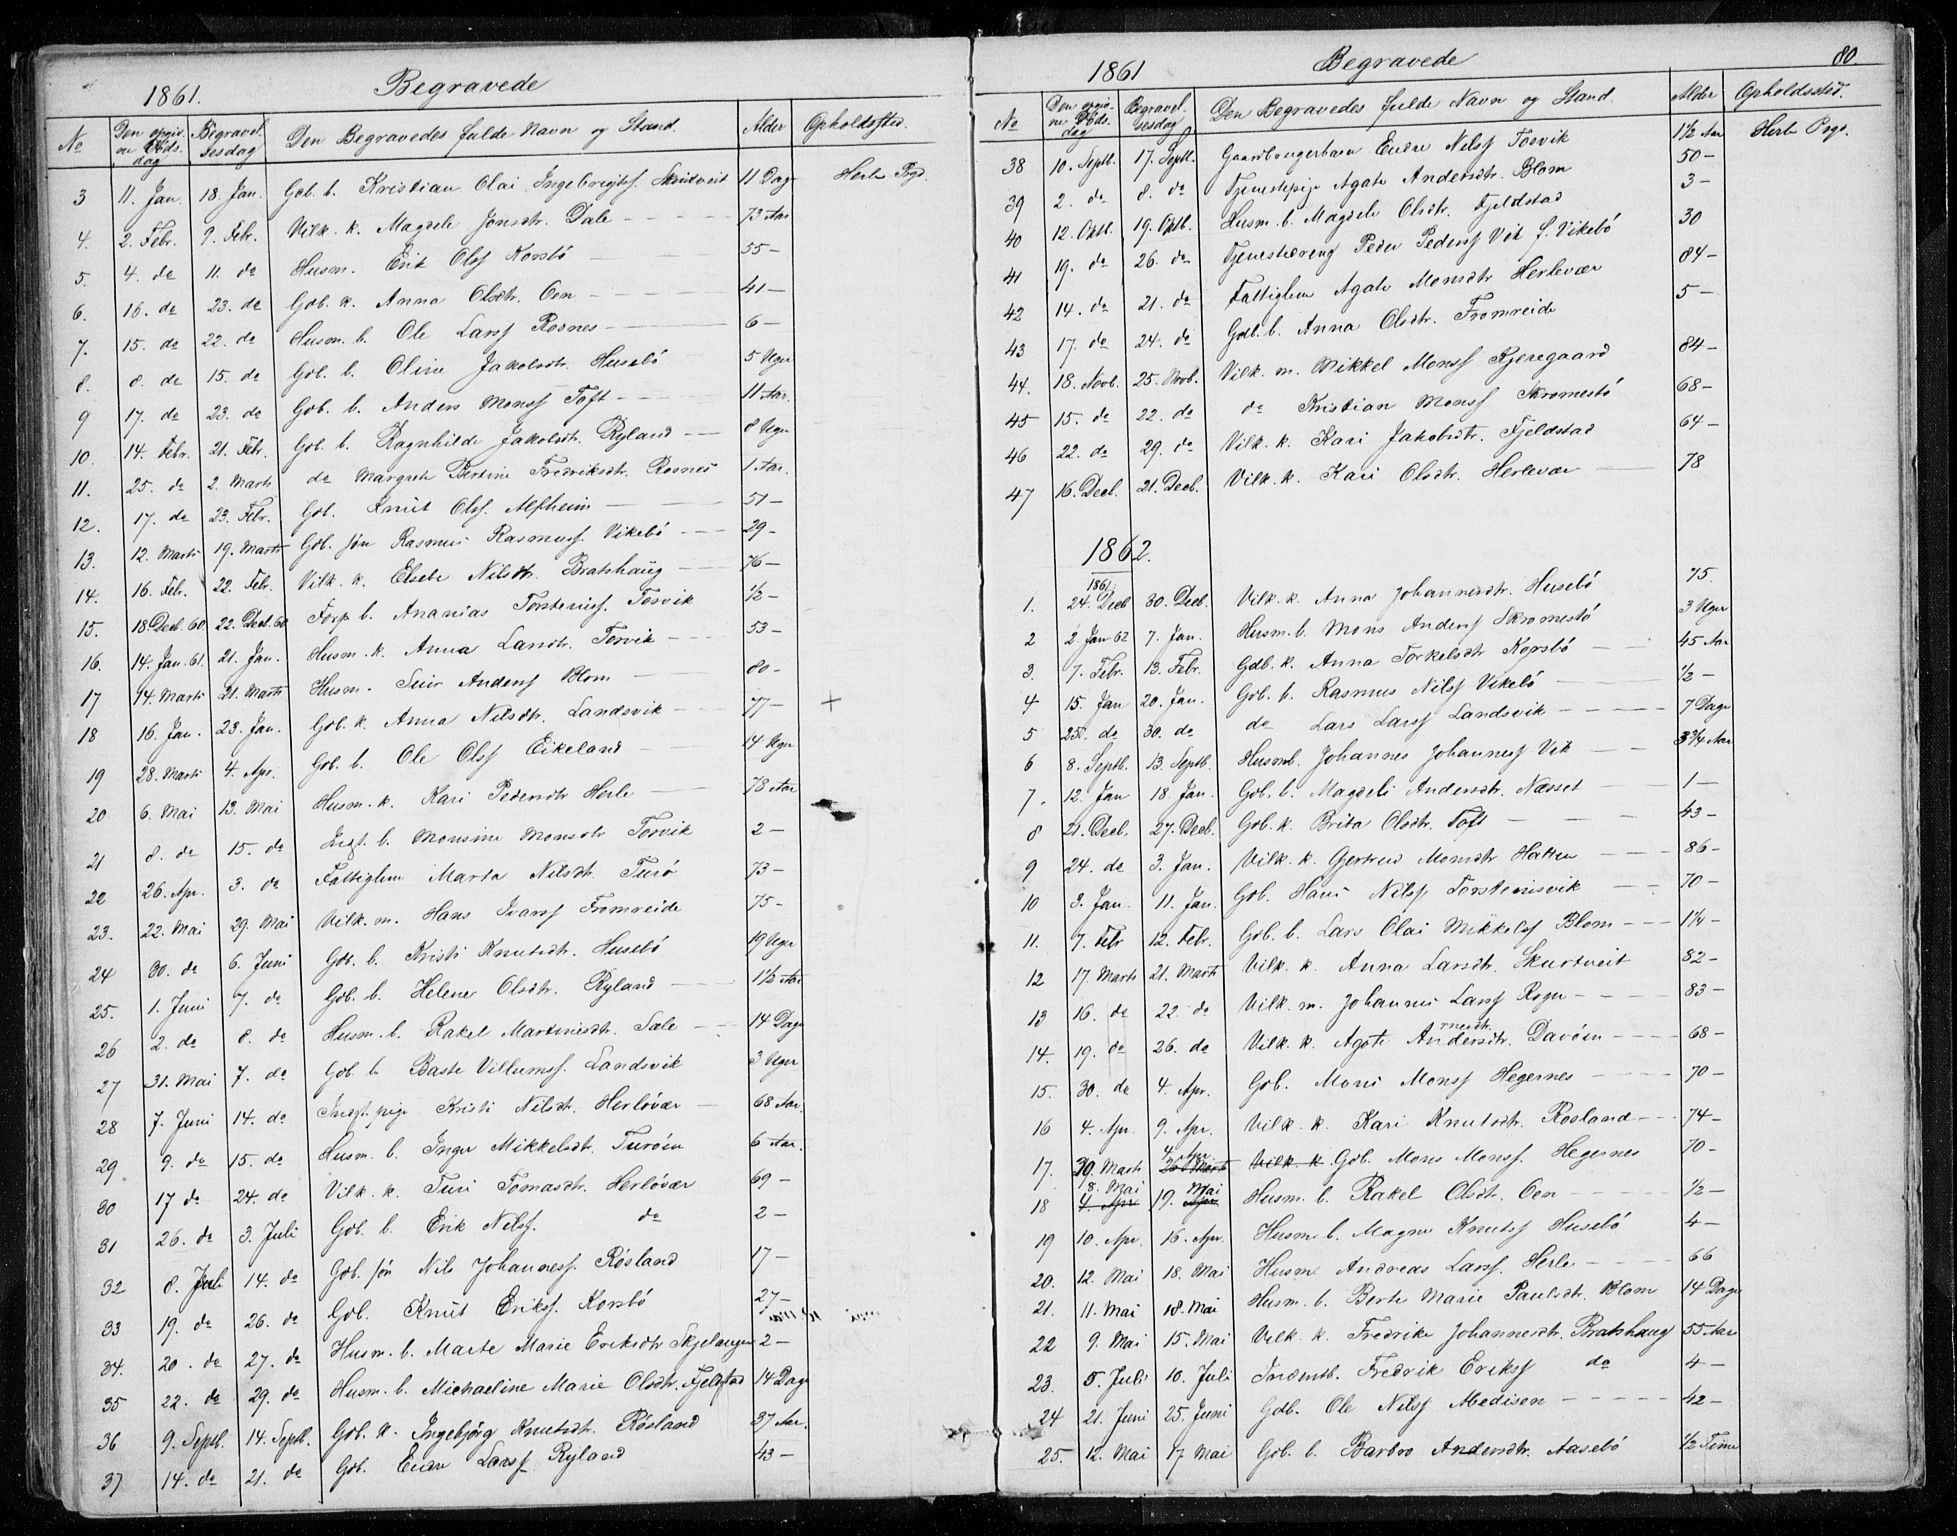 1861. Begravede
No Den opgivne Døds-dag Begravel-sesdag Den Begravedes fulde Navn og Stand. Alder Opholdssted.
3 11. Jan. 18. Jan. Gdb. b. Kristian Olai Ingebrigts. 11 Dag Herlø Prgd.
4. 2. Febr. 9. Febr. Vilk. k. Magdele Jonsdtr. Dale 73 Aar
5. 4. do 11. do Husm. Erik Olss Korsbø 55 —
6. 16. do 23. do Gdb. k. Anna Olsdtr. Oen 41 —
7. 15. do 22. do Husm. b. Ole Larss Rosnes 6 —
8. 8. do 15. do Gdb. b. Oline Jakobsdtr. Husebø 5 Uger
9 17. do 23. do Gdb. b. Anders Monss Toft 11 Aar.
10. 14. Febr. 21. Febr. Gdb. b. Ragnhilde Jakobsdtr. Ryland 8 Uger
11. 25. do 2. Marts do Margrete Bertine Fredriksdtr. Rosnes 1 Aar.
12. 17. do 23. Febr. Gdb. Knut Olss. Alfheim 51 —
13. 12. Marts 19. Marts Gdb. søn Rasmus Rasmuss. Vikebø 29 —
14. 16. Febr. 22. Febr. Vilk. k. Elsebe Nilsdtr. Bratshaug 76 —
15. 18. Decl. 60. 22. Decl. 60 b. Ananias Torsteinss. Tosvik ½ —
16. 14. Jan. 61. 21. Jan. Husm. k. Anna Larsdtr. Tosvik 53 —
17 14. Marts 21. Marts Husm. Anderss Blom 80 —
18 16. Jan. 23. Jan. Gdb. k. Anna Nilsdtr. Landsvik 77 — +
19 28. Marts 4. Apr. Gdb. b. Ole Olss Eikeland 14 Uger
20 6. Mai 13. Mai Husm. k. Kari Pedersdtr Herlø 78 Aar
21 8. do 15. do b. Monsine Monsdtr Tosvik 2 —
22 26. Apr. 3. do Fattiglem Marta Nilsdtr Turø 73 —
23. 22. Mai 29. Mai Vilk. m. Hans Ivarss Fromreide 75 —
24 30. do 6. Juni Gdb. b. Kristi Knutsdtr. Husebø 19 Uger
25. 1. Juni 7. do Gdb. b. Helene Olsdtr. Ryland 1½ Aar
26 2. do 8. do Husm. b. Rakel Martinesdtr. Dale 14 Dage
27 31. Mai 7. do Gdb. b Baste Villumss. Landsvik 3 Uger
28 7. Juni 14. do pige Kristi Nilsdtr. Herløvær 68 Aar.
29 9. do 15. do Husm. b. Inger Mikkelsdtr. Turøen 6 Aar.
30 17 do 24. do Vilk. k. Turi Tomasdtr. Herløvær 69 —
31 26. do 3. Juli Gdb. b. Erik Nilss. do 2 —
32 8. Juli 14. do Gdb. søn Nils Johanness. Røsland 17 —
33 19. do 26. do Gdb. Knut Erikss. Korsbø 27 —
34. 20. do 27. do Husm. b. Marte Marie Eriksdtr Skjelanger 2 —
35 22. do 29. do Husm. b. Michaeline Marie Olsdtr. Fjeldstad 14 Dage
36 9. Septl. 14. Septl. Gdb. k. Ingebjørg Knutsdtr. Røsland 37 Aar.
37 14. do 21. do Gdb. Endre Larss Ryland 43 —
1861 Begravede 80.
No Den opgivne Døds-dag Begravel-sesdag Den Begravedes fulde Navn og Stand. Alder Opholdssted.
38 10. Septl. 17. Septl. Gaardbrugerbarn Endre Nilss Tosvik 1½ Aar Herlø Prgd.
39 2. do 8. do Tjenestepige Agate Andersdtr. Blom 50 —
40 12. Oktl. 19. Oktl. Husm. b. Magdele Olsdtr. Fjeldstad 3 —
41 19. do 26. do Tjenestedreng Peder Pederss Vik f. Vikebø 30
42 14. do 21. do Fattiglem Agate Monsdtr Herløvær 84 —
43 17. do 24. do Gdb. b. Anna Olsdtr. Fromreide 5 —
44. 18. Novb. 25. Novb. Vilk. m. Mikkel Monss Kjeregaard 84 —
45 15. do 22. do do Kristian Monss Skromestø 68 —
46 22. do 29. do Vilk. k. Kari Jakobsdtr. Fjeldstad 64 —
47 16. Decl. 21. Decl. Vilk. k. Kari Olsdtr. Herløvær 78
1862.
1861.
1. 24. Decl 30. Decl. Vilk. k. Anna Johannesdtr. Husebø 75.
2 2. Jan 62 7. Jan. Husm. b. Mons Anderss Skromestø 3 Uger
3. 7. Febr. 13. Febr. Gdb. k. Anna Torkelsdtr Korsbø 45 Aar
4 15. Jan 20. Jan. Gdb. b. Rasmus Nilss Vikebø ½ —
5 25. do 30. do do Lars Larss Landsvik 7 Dage
6 8. Septl. 13. Septb. Husmb. Johannes Johanness Vik 3¾ Aar
7. 12. Jan 18. Jan. Gdb. b. Magdeli Andersdtr. Næsset 1 —
8 21. Decl. 27. Decl. Gdb. k. Brita Olsdtr. Toft 43 —
9 24. do 3. Jan. Vilk. k. Gertrud Monsdtr Hatten 86 —
10 3. Jan. 11. Jan. Gdb. Hans Nilss Torsteinsvik 70 —
11. 7. Febr 12. Febr. Gdb. b. Lars Olai Mikkelss Blom 1¼ —
12 17. Marts 21. Marts Vilk. k. Anna Larsdtr. Skurtveit 82 —
13 16. do 22. do Vilk. m. Johannes Larss Røger 83 —
14. 19. do 26. do Vilk. k. Agate Andersdtr. Davøen 68 —
15. 30. do 4. Apr. Gdb. Mons Monss Hegernes 70 —
16 4. Apr. 9. Apr. Vilk. k. Kari Knutsdtr. Rosland 74 —
17. 30. Marts 4. Apr. 26 Marts Vilk. k. Gdb. Mons Monss. Hegernes 70 —
18 8. Mai 4. Apr 19. Mai Apr Husm. b. Rakel Olsdtr. Oen ½ —
19 10. Apr. 16. Apr. Husm. b. Magne Knutss Husebø 4 —
20. 12. Mai 18. Mai Husm. Andreas Larss. Herlø 66
21. 11. Mai 18. Mai Husm. b. Berte Marie Paulsdtr. Blom 14 Dage
22 9. Mai 15. Mai Vilk. k. Fredrike Johannesdtr. Bratshaug 55 Aar
23. 5. Juli 10. Juli Fredrik Erikss do 4 —
24 21. Juni 25. Juni Gdb. Ole Nilss Medisen 42 —
25. 12. Mai 17 Mai Gdb. b. Barbro Andersdtr. Aasebø ½ Time